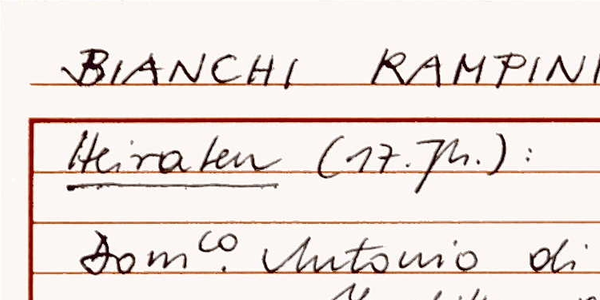 BIANCHI RAMPINI
Heiraten (17. Jh.):
Dom.co Antonio di